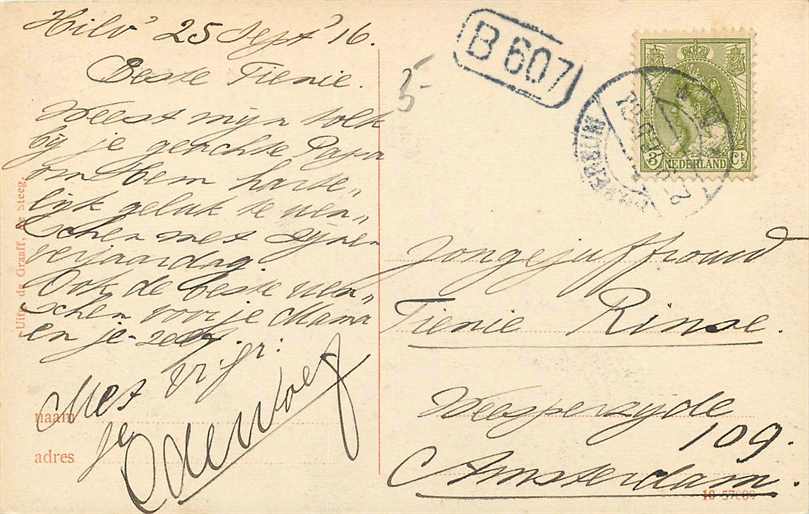 Hilv' 25 Sept '16.
Beste Tienie.
Weest mijn tolk
bij je geachte Papa
om hem harte-
lijk geluk te wen„
schen met zijnen
verjaardag.
Ook de beste wen„
schen voor je Mama
en je-zelf.
Met vr. gr:
je
naam
adres
Uitg. de Graaff, De Steeg.
B 607
5-
3 NEDERLAND Ct
Jongejuffrouw
Tienie Rinse.
Weesperzijde
109.
Amsterdam.